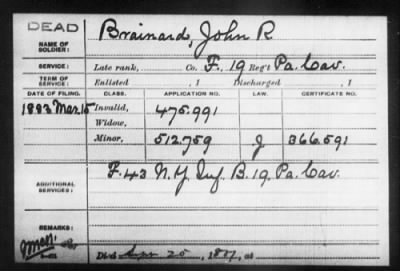 DEAD
NAME OF SOLDIER: Brainard, John R
SERVICE: Late rank, Co. F, 19 Reg't Pa. Cav.
TERM OF SERVICE: Enlisted , 1 Discharged , 1
DATE OF FILING. CLASS. APPLICATION NO. LAW. CERTIFICATE NO.
1883 Mar. 15 Invalid, 475.991
Widow,
Minor, 512.759 J 366.591
ADDITIONAL SERVICES: F. 43 N.Y. Inf. B. 19. Pa. Cav.
REMARKS:
Died Apr 25, , at